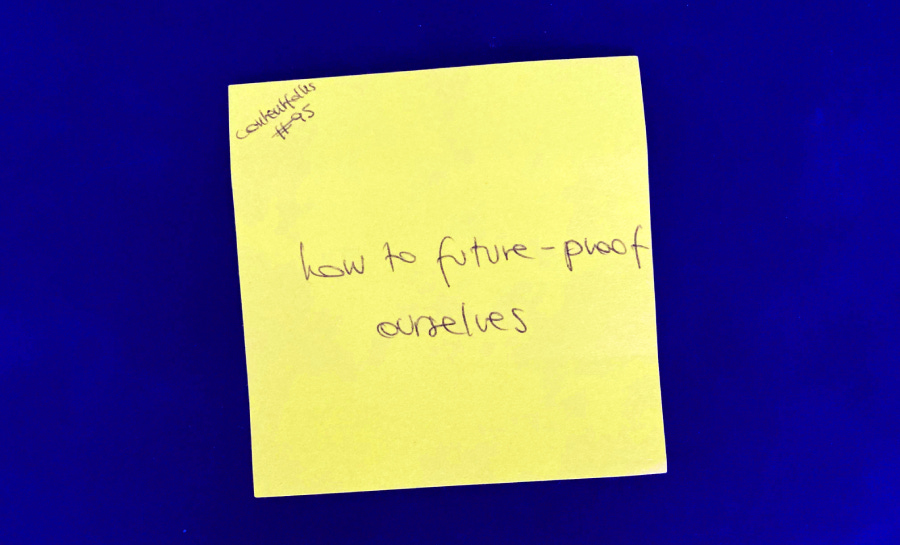 contentfolks
#95
how to future-proof
ourselves